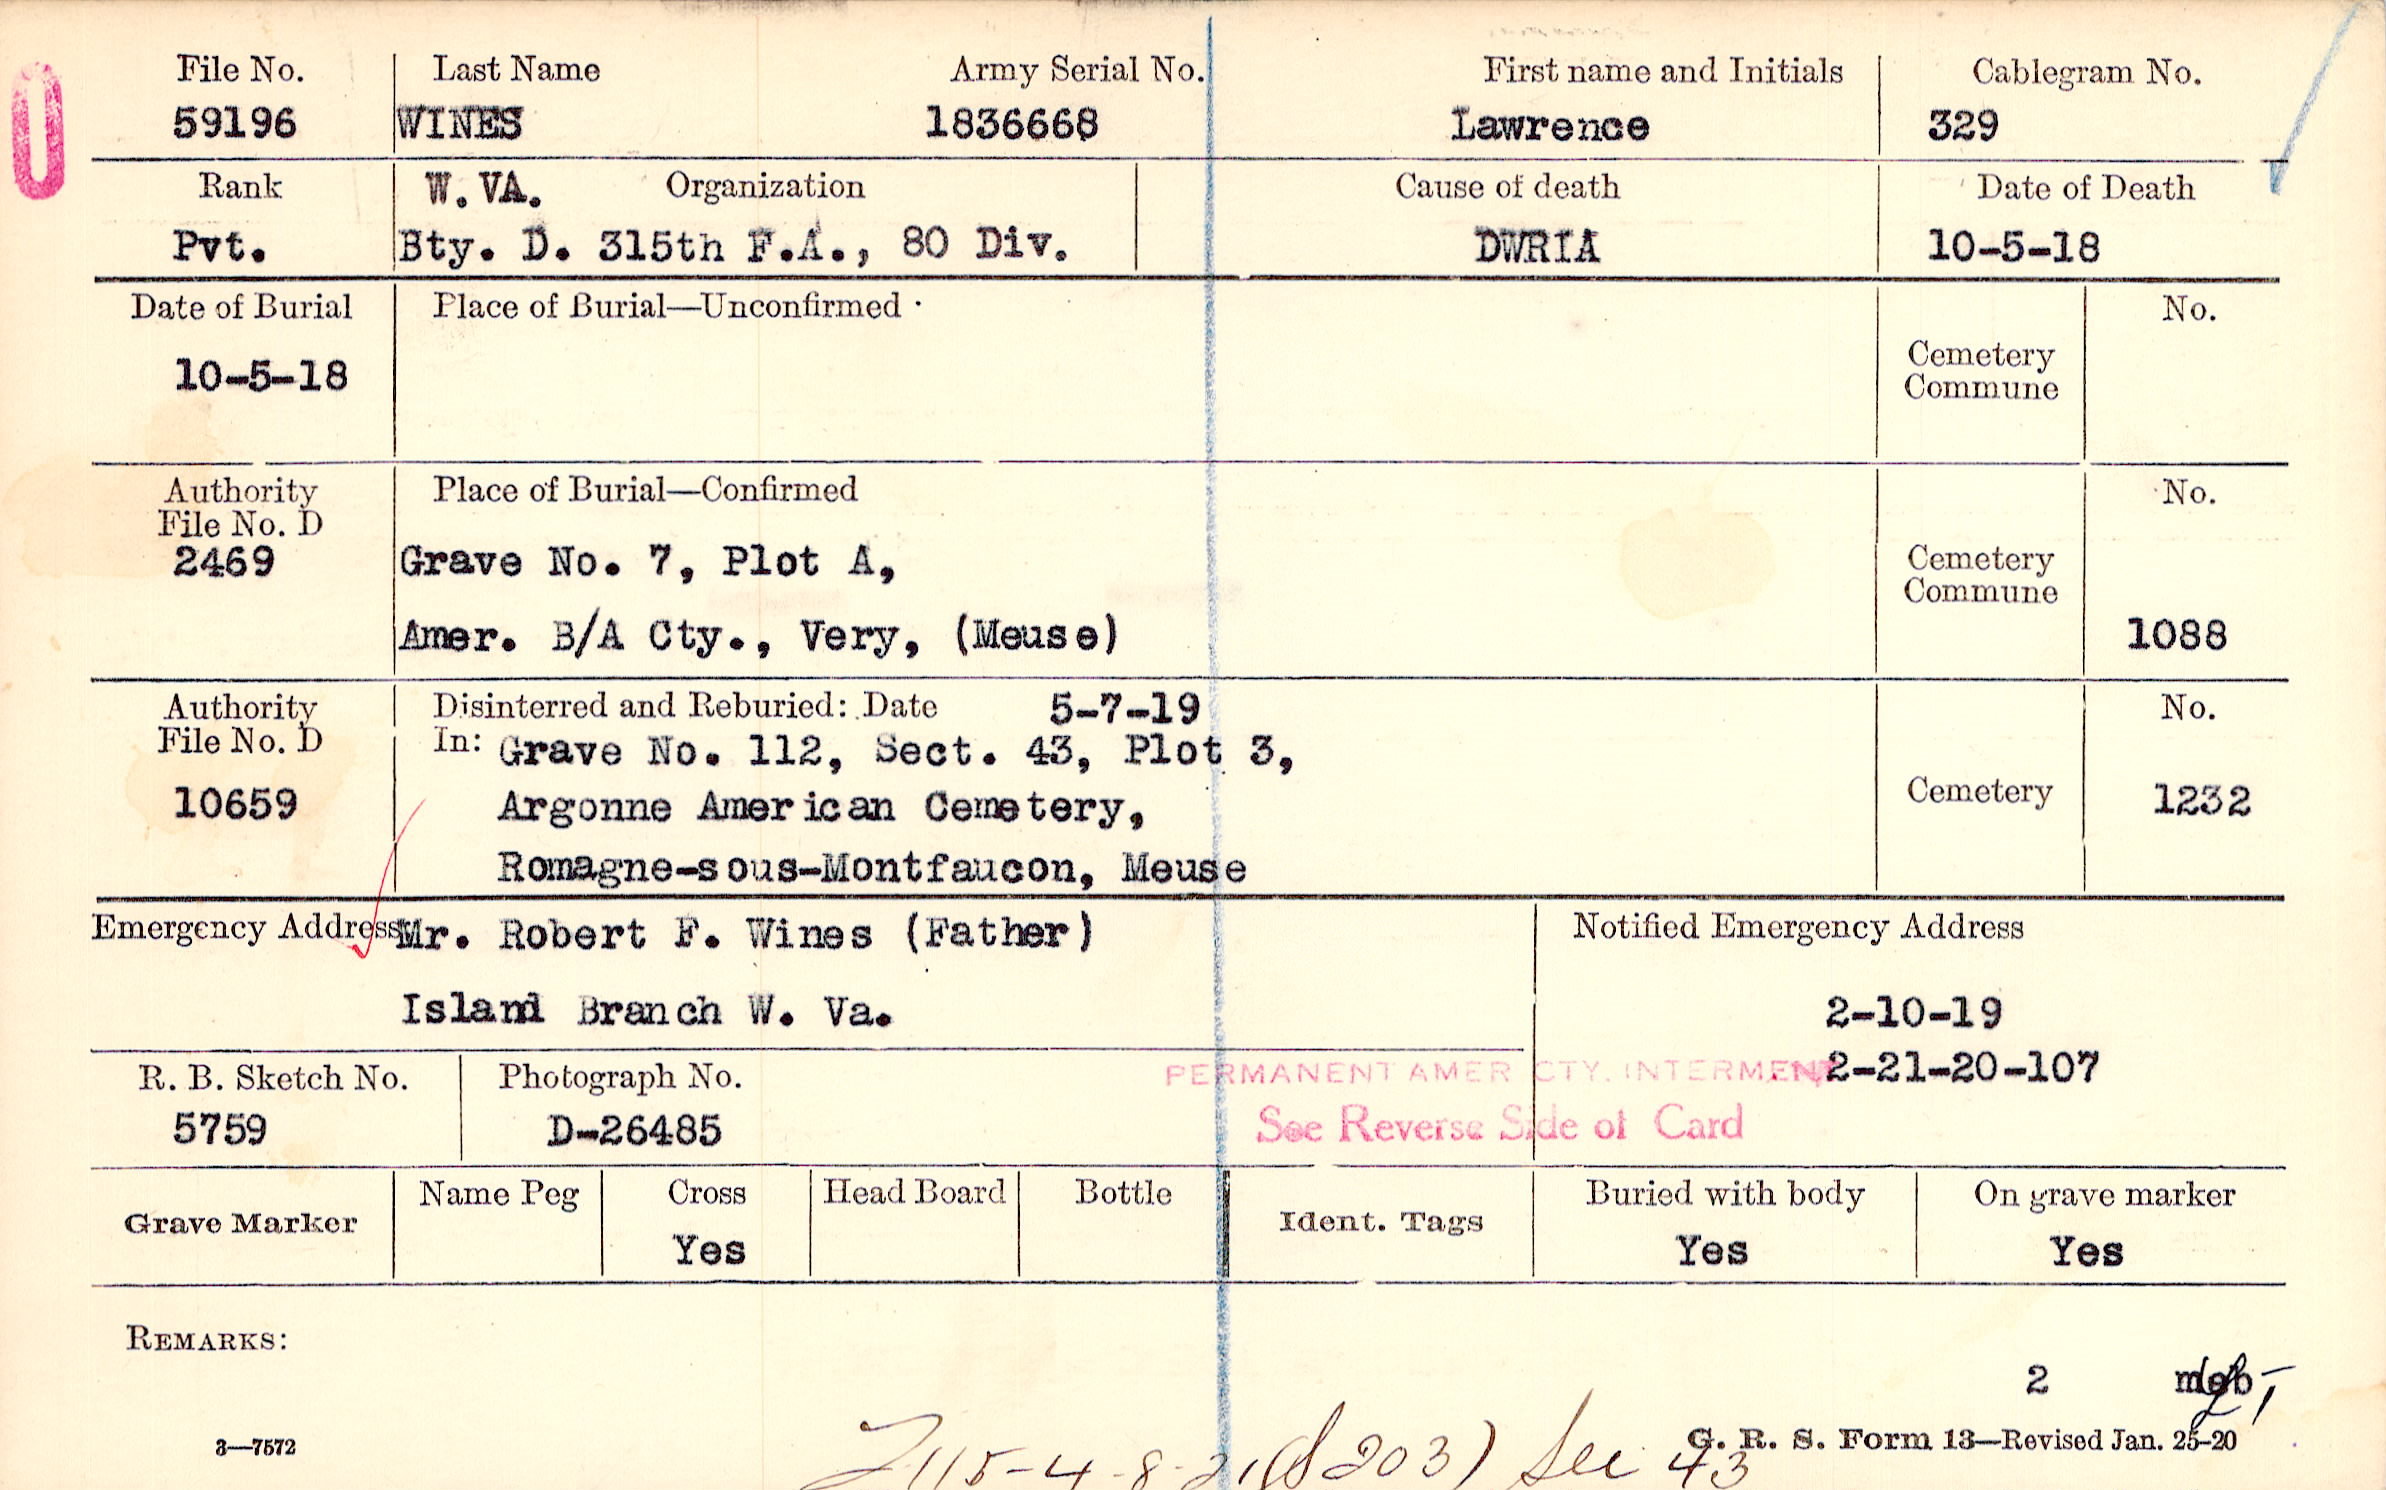 File No. Last Name Army Serial No. First name and Initials Cablegram No.
59196 WINES 1836668 Lawrence 329
Rank W. VA. Organization Cause of death Date of Death
Pvt. Bty. D. 315th F.A., 80 Div. DWRIA 10-5-18
Date of Burial Place of Burial—Unconfirmed No.
10-5-18 Cemetery
Commune
Authority Place of Burial—Confirmed No.
File No. D
2469 Grave No. 7, Plot A, Cemetery
Commune
Amer. B/A Cty., Very, (Meuse) 1088
Authority Disinterred and Reburied: Date 5-7-19 No.
File No. D In: Grave No. 112, Sect. 43, Plot 3,
10659 Argonne American Cemetery, Cemetery 1232
Romagne-sous-Montfaucon, Meuse
Emergency Address Mr. Robert F. Wines (Father) Notified Emergency Address
Island Branch W. Va. 2-10-19
R. B. Sketch No. Photograph No. PERMANENT AMER CTY. INTERMENT 2-21-20-107
5759 D-26485 See Reverse Side of Card
Grave Marker Name Peg Cross Head Board Bottle Ident. Tags Buried with body On grave marker
Yes Yes Yes
REMARKS:
2
3—7572 G. R. S. Form 13—Revised Jan. 25-20
115-4-8-21 203) Sec 43